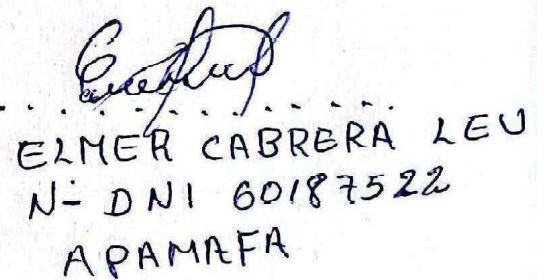 ELMER CABRERA LEU
N- DNI 60187522
APAMAFA